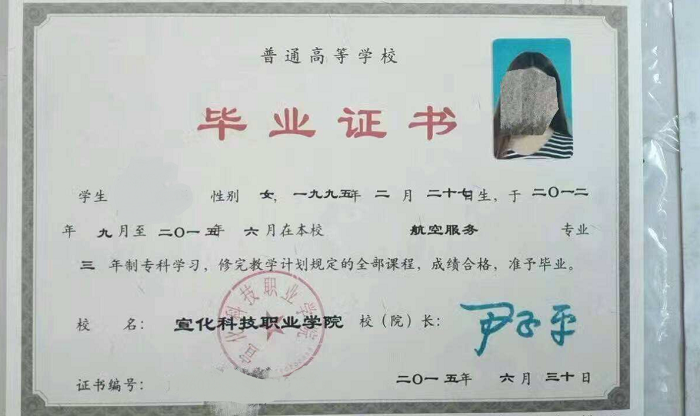 普通高等学校
毕业证书
学生 性别 女，一九九五年 二 月 二十七日生，于 二〇一二
年 九 月至 二〇一五年 六 月在本校 航空服务 专业
三 年制专科学习，修完教学计划规定的全部课程，成绩合格，准予毕业。
校 名： 宣化科技职业学院 校（院）长： 尹玉平
宣化科技职业学院
证书编号： 二〇一五年 六 月 三十日